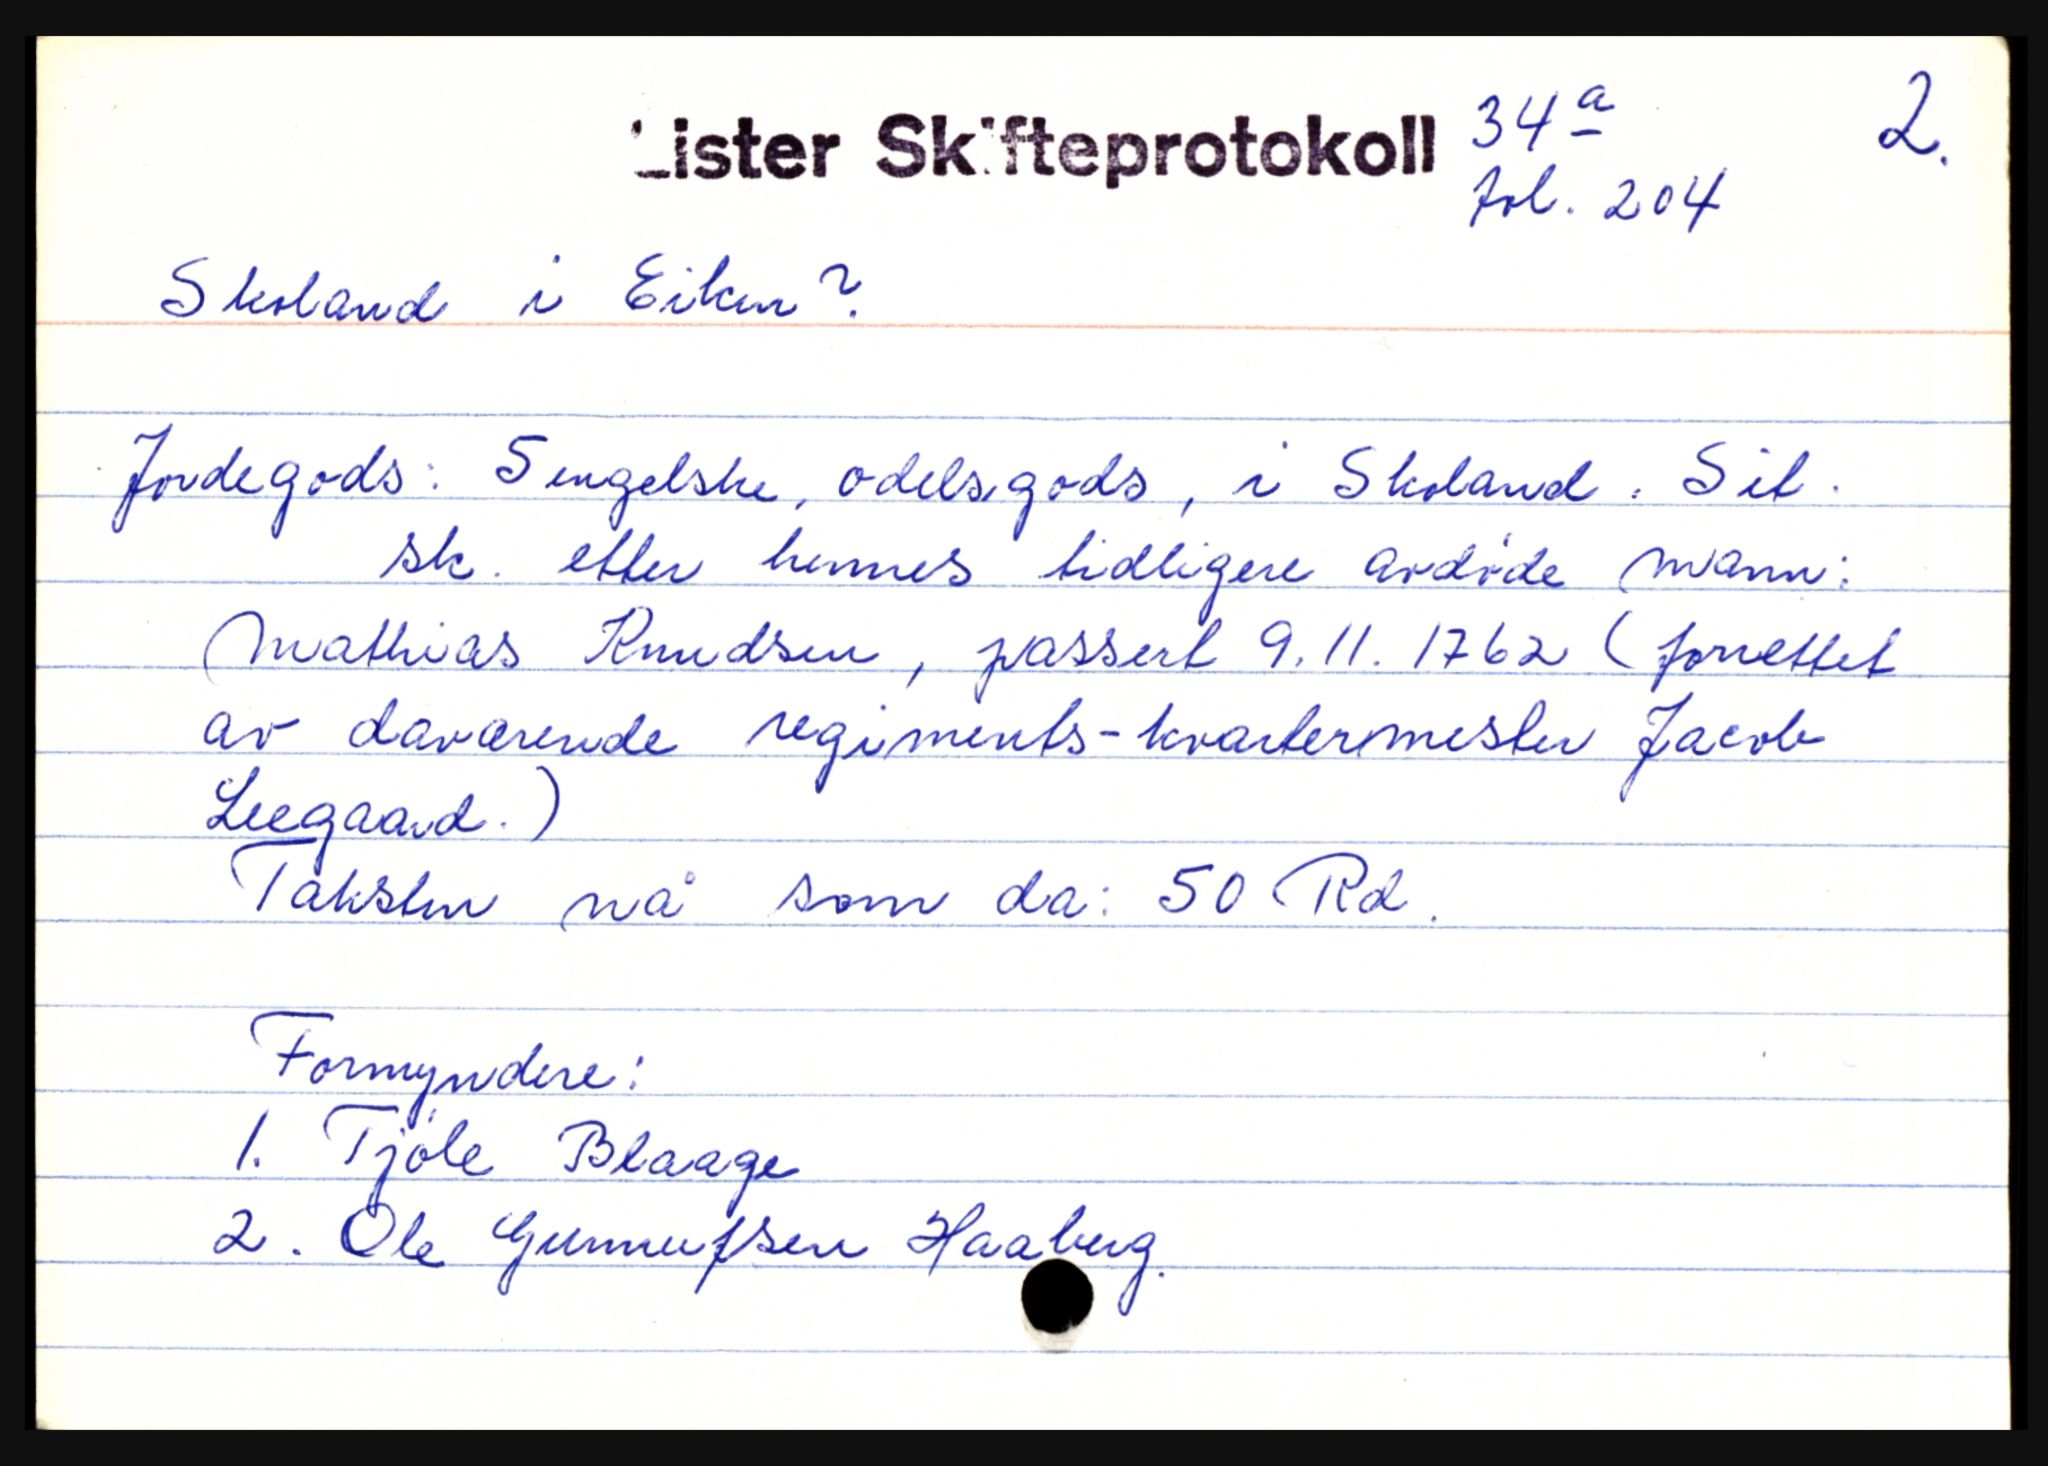 Lister Skifteprotokoll 34a 2.
fol. 204
Skoland i Eiken?
Jordegods: 5 engelske, odelsgods, i Skoland. Sit.
sk. etter hennes tidligere avdøde mann:
Mathias Knudsen, passert 9.11.1762 (forrettet
av daværende regiments-kvartermester Jacob
Leegaard.)
Taksten nå som da: 50 Rd.
Formyndere:
1. Tjöle Blaage
2. Ole Gunnufsen Haaberg.